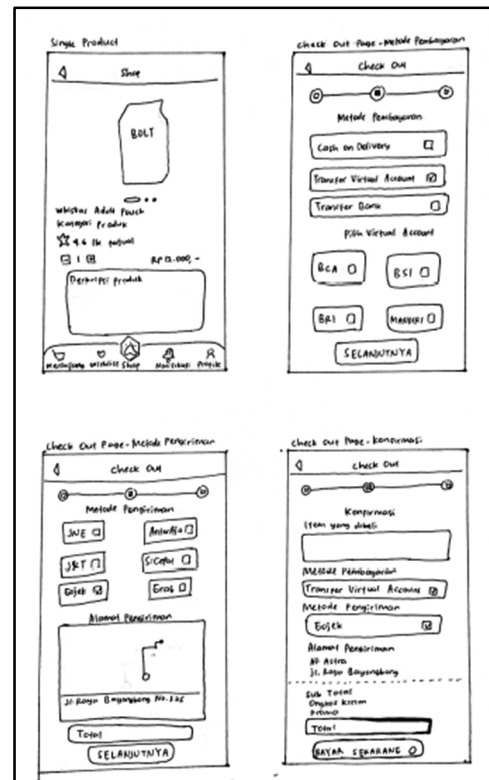 Single Product
Shop
BOLT
Whiskas Adult Pouch
Kategori Produk
4.6 1k terjual
1
Rp 12.000,-
Deskripsi Produk
Wishlist
Shop
Notifikasi
Profile
Check Out Page - Metode Pembayaran
Check Out
Metode Pembayaran
Cash on Delivery
Transfer Virtual Account
Transfer Bank
Pilih Virtual Account
BCA
BSI
BRI
MANDIRI
SELANJUTNYA
Check Out Page - Metode Pengiriman
Check Out
Metode Pengiriman
JNE
AnterAja
J&T
SiCepat
Gojek
Grab
Alamat Pengiriman
Jl. Raya Bayongbong No.
Total
SELANJUTNYA
Check Out Page - Konfirmasi
Check Out
Konfirmasi
Item yang dibeli
Metode Pembayaran
Transfer Virtual Account
Metode Pengiriman
Gojek
Alamat Pengiriman
AP Astro
Jl. Raya Bayongbong
Sub Total
Ongkos Kirim
Promo
Total
BAYAR SEKARANG